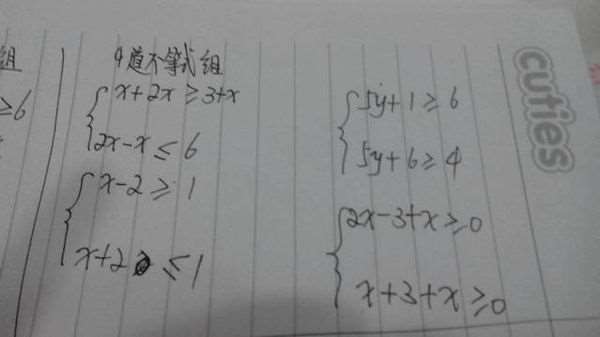 组
≥6
4道不等式组
x+2x≥3+x
2x-x≤6
x-2≥1
x+2≤1
5y+1≥6
5y+6≥4
2x-3+x≥0
x+3+x≥0
cuties